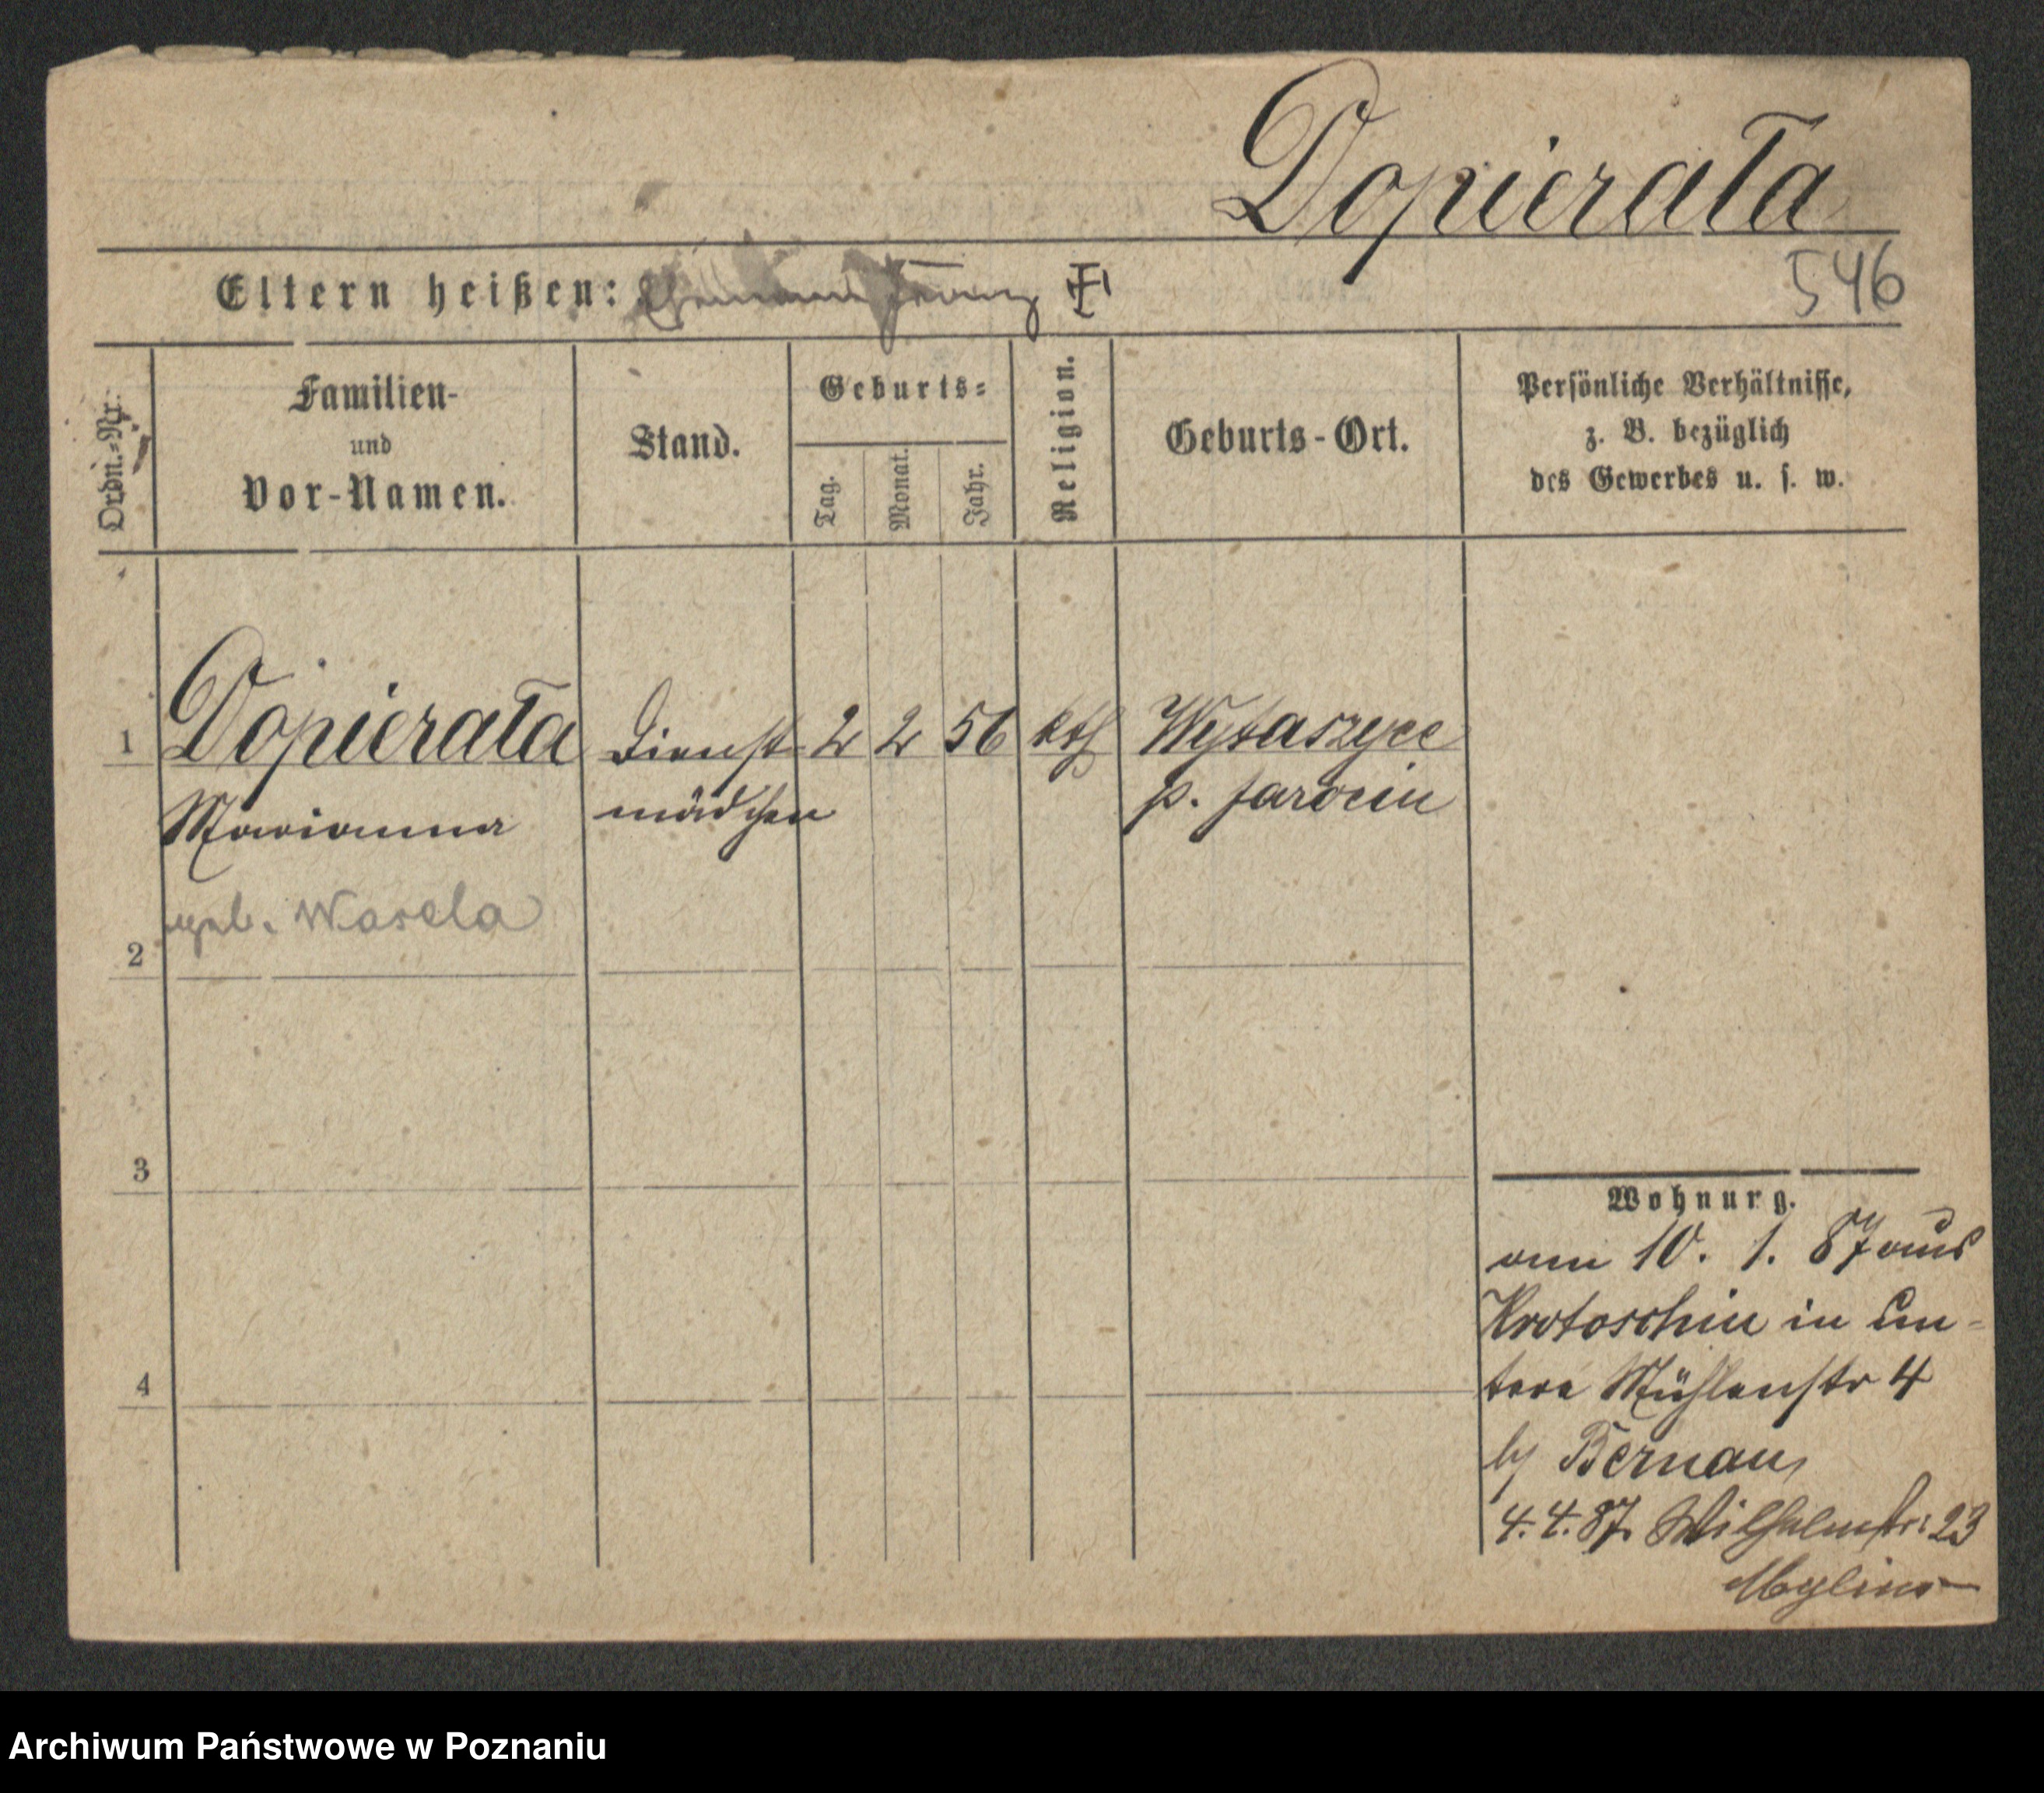 Dopierała
546
Eltern heißen: Ehemann Franz
Ordn.-Nr.
Familien-
und
Vor-Namen.
Stand.
Geburts=
Tag.
Monat.
Jahr.
Religion.
Geburts-Ort.
Persönliche Verhältnisse,
z. B. bezüglich
des Gewerbes u. s. w.
1 Dopierała Dienst- 2 2 56 kth Wytaszyce
Marianna mädchen p. Jarocin
geb. Wasela
2
3
4
Wohnung.
vom 10. 1. 87 aus
Krotoschin in Un-
tere Mühlenstr 4
by Bernau
4.4.87. Wilhelmstr: 23
Mylius
Archiwum Państwowe w Poznaniu